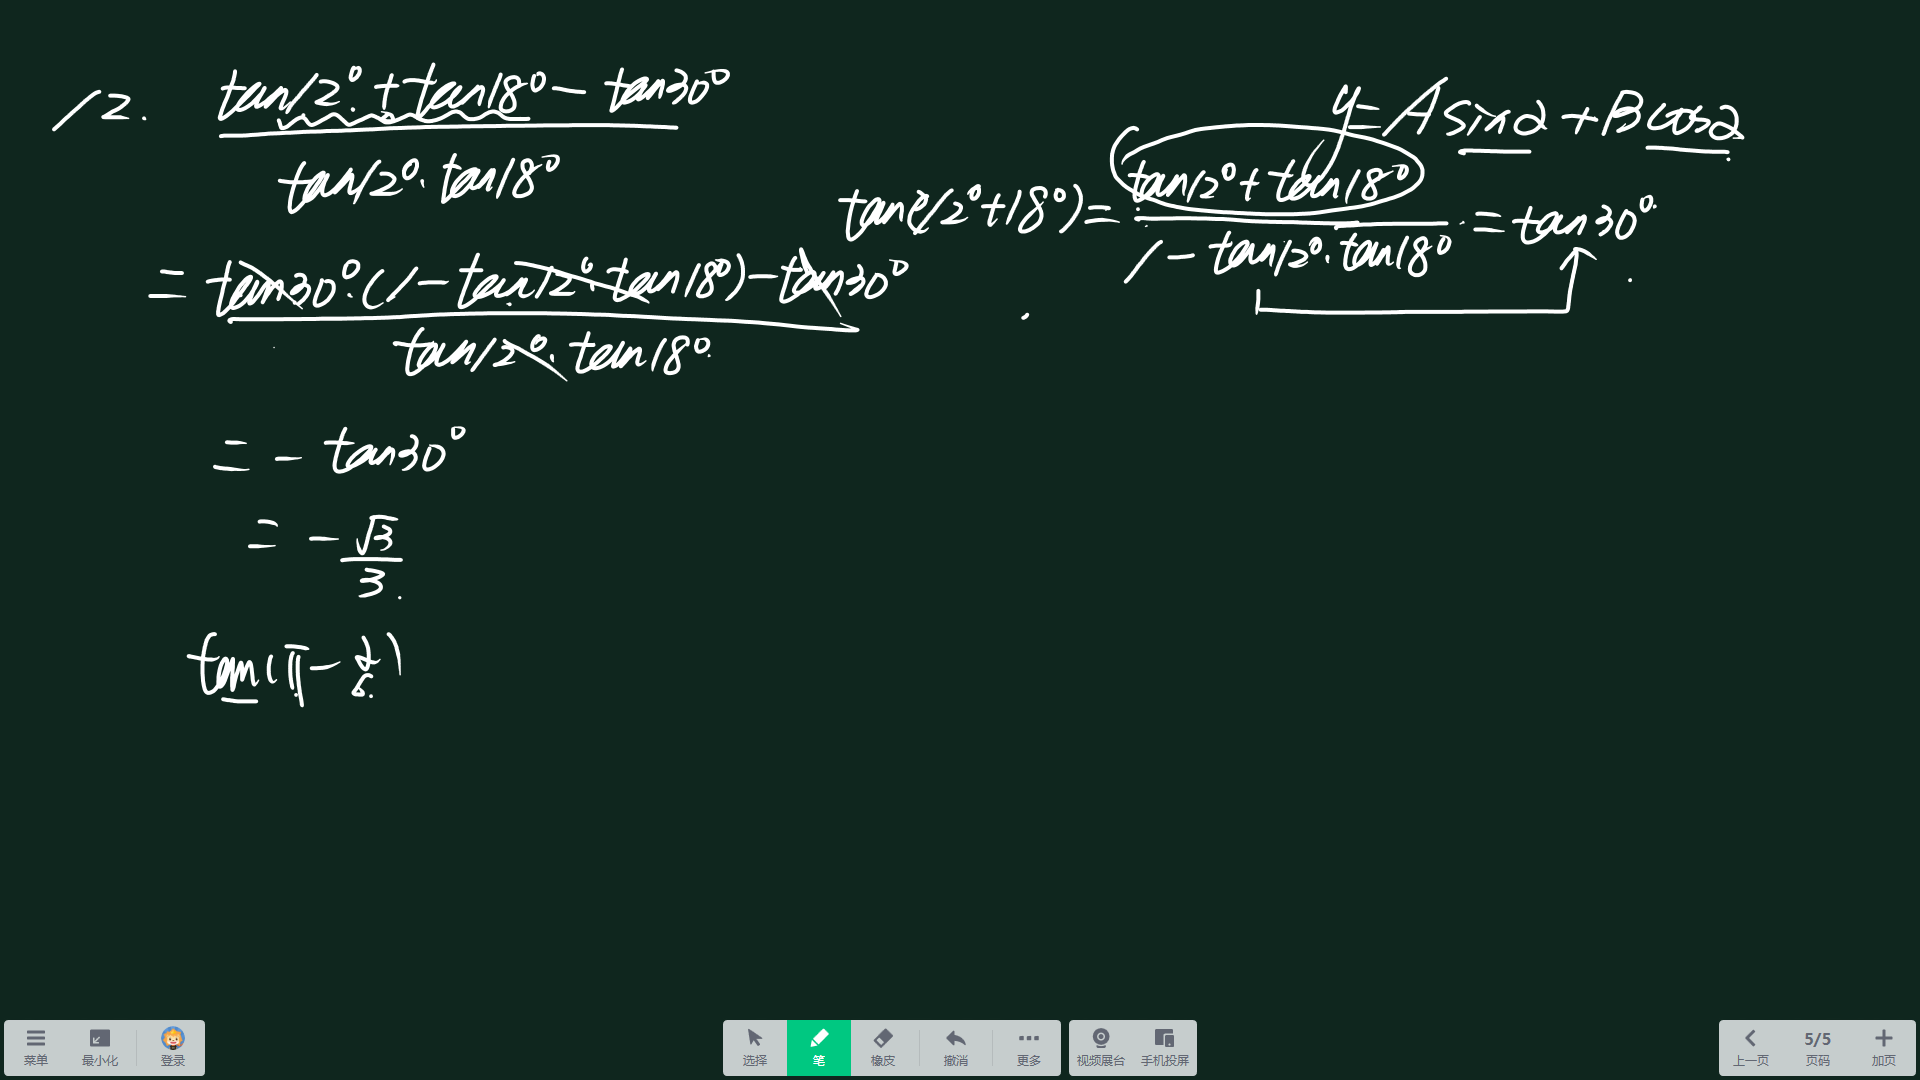 12. (tan12°+tan18°-tan30°)/(tan12°·tan18°)
= (tan30°·(1-tan12°·tan18°)-tan30°)/(tan12°·tan18°)
= -tan30°
= -√3/3
tan(π-α/6)
y=Asinα+Bcosα
tan(12°+18°)=(tan12°+tan18°)/(1-tan12°·tan18°)=tan30°
菜单 最小化 登录 选择 笔 橡皮 撤消 更多 视频展台 手机投屏 上一页 5/5 页码 加页